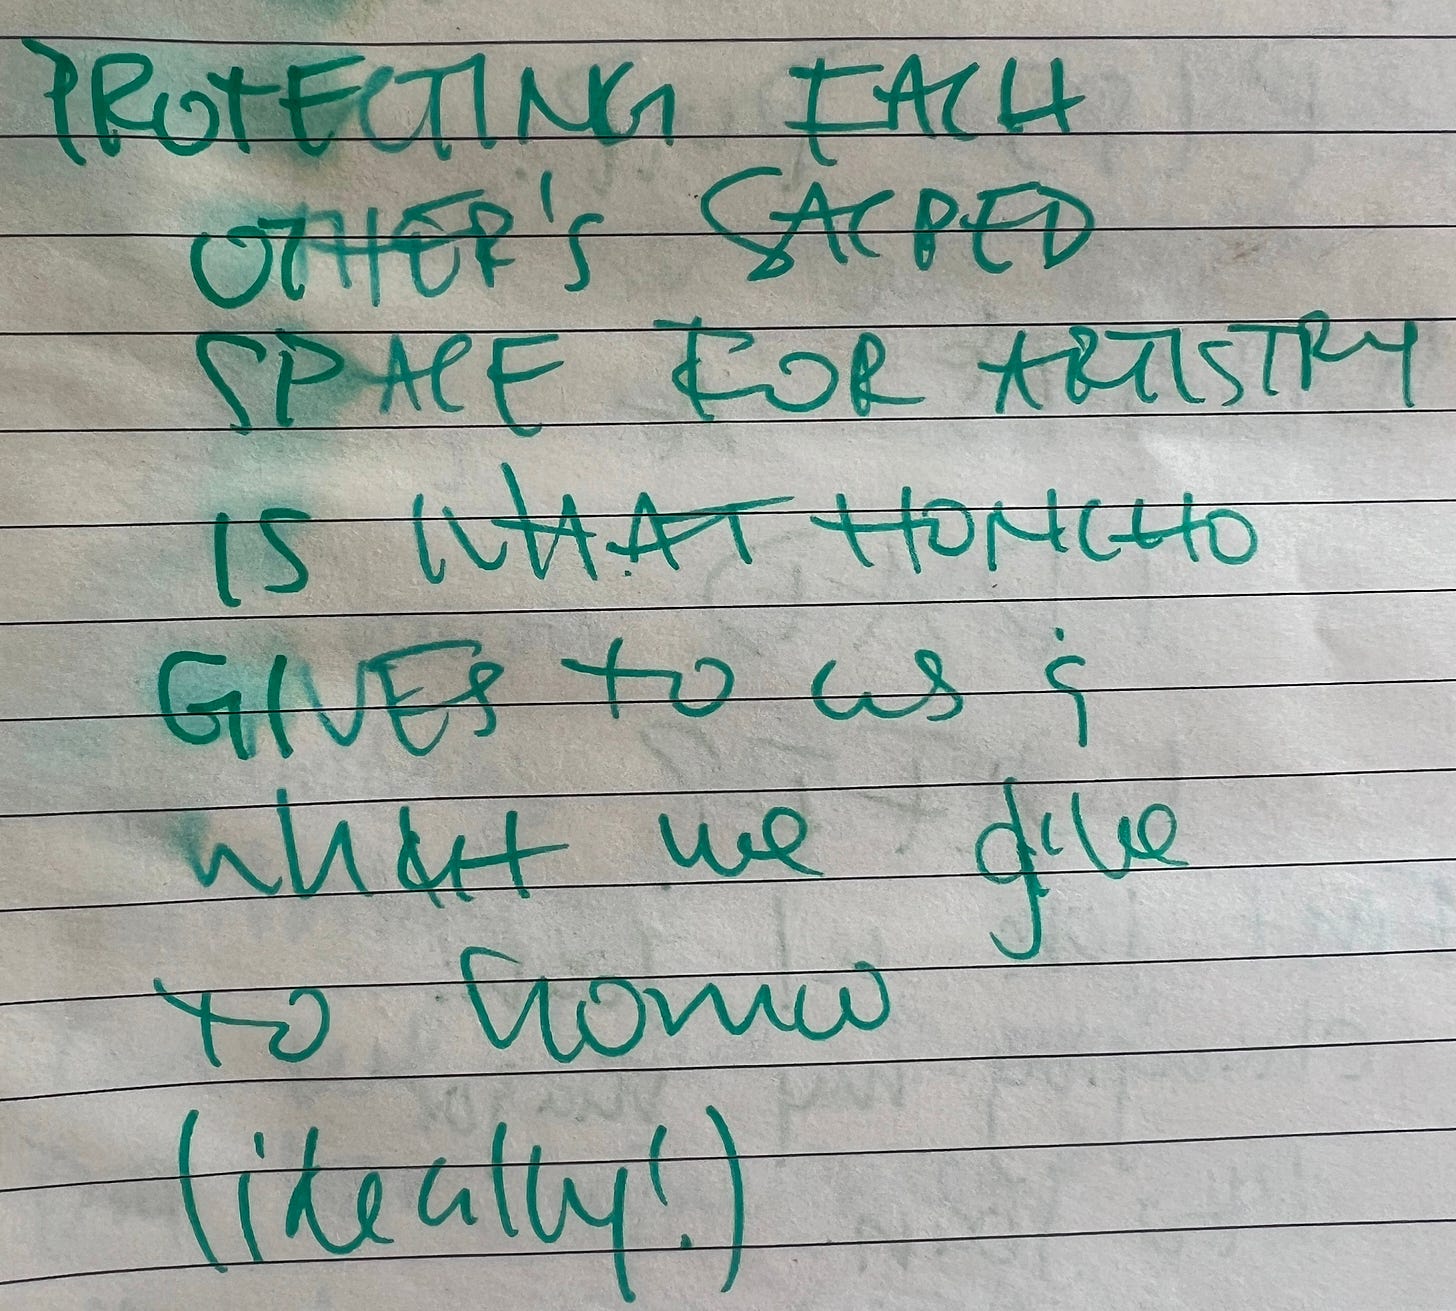 PROTECTING EACH
OTHER'S SACRED
SPACE FOR ARTISTRY
IS WHAT HONCHO
GIVES to us &
what we give
to
(ideally!)